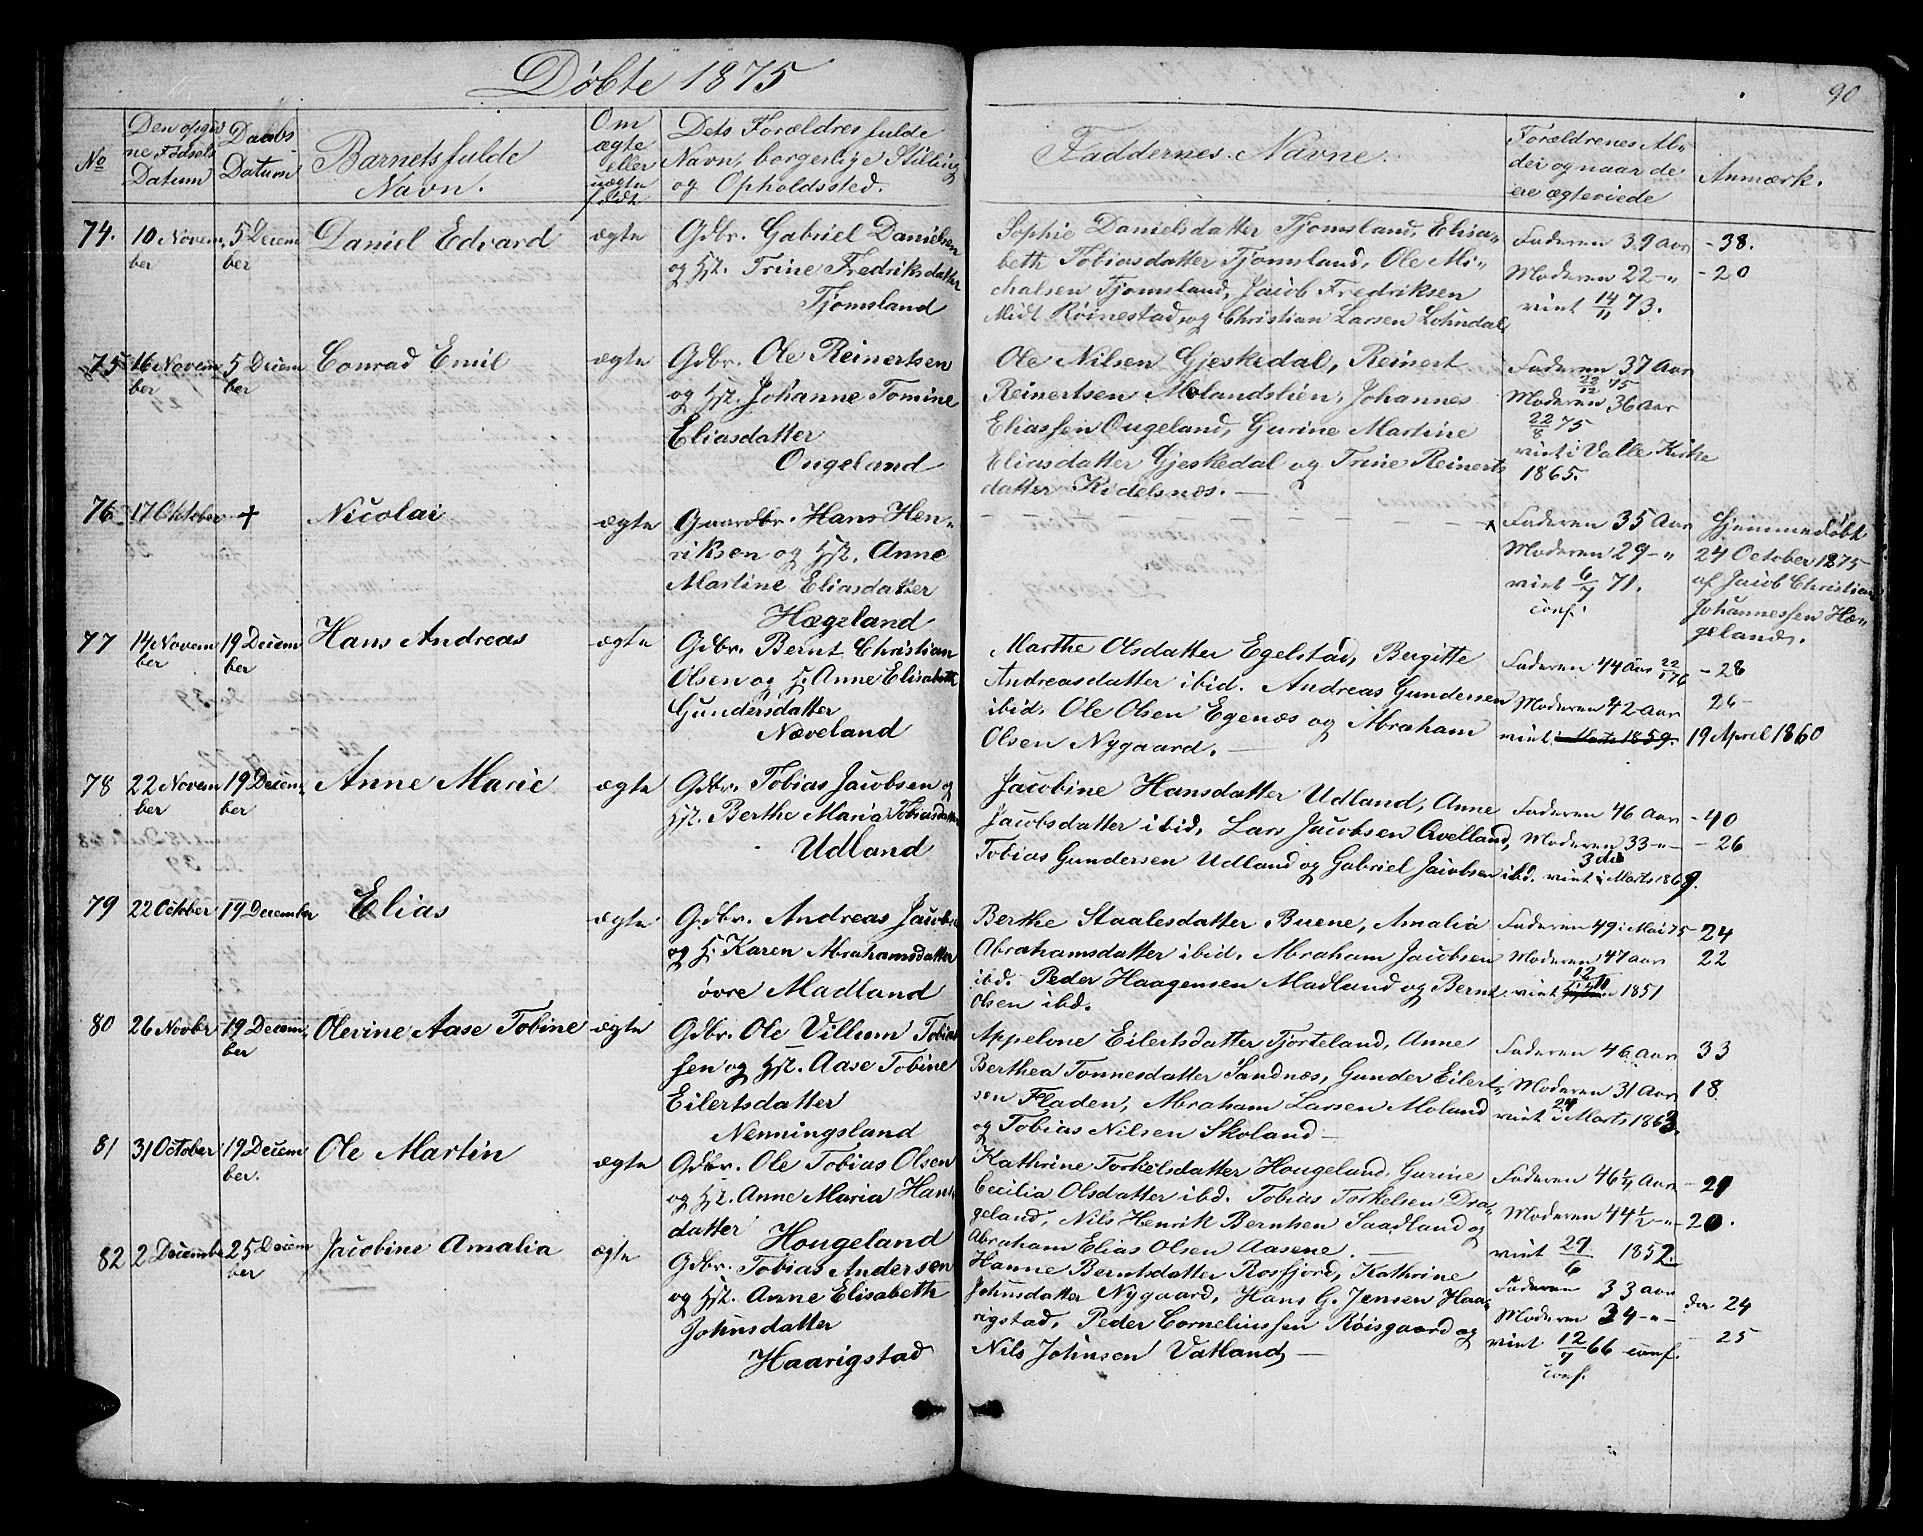 Døbte 1875
90
No
Den opgiv
ne Fødsels
Datum
Daabs
Datum
Barnets fulde
Navn.
Om
ægte
eller
uægte
født
Dets Forældres fulde
Navn, borgerlige Stilling
og Opholdssted.
Faddernes Navne.
Forældrenes Al-
der og naar de
ere ægteviede
Anmærk.
74. 10 Novem 5 Decem Daniel Edvard ægte Gdbr. Gabriel Danielsen
ber ber og Hst. Trine Fredriksdatter
Tjomsland
Sophie Danielsdatter Tjomsland, Elisa-
beth Tobiasdatter Tjomsland, Ole Mi-
chalsen Tjomsland, Jacob Fredriksen
Midt Røinestad og Christian Larsen Lohndal
Faderen 39 Aar - 38.
Moderen 22 - " - 20
viet 14/11 73.
75 16 Novem 5 Decem Conrad Emil ægte Gdbr. Ole Reinertsen
ber ber og Hst. Johanne Tomine
Eliasdatter
Ougeland
Ole Nilsen Gjeskedal, Reinert
Reinertsen Molandslien, Johannes
Eliassen Ougeland, Gurine Martine
Eliasdatter Gjeskedal og Trine Reinerts
datter Kidelsnæs. —
Faderen 37 Aar
22/12 75
Moderen 36 Aar
22/8 75
viet i Valle Kirke
1865.
76 17 Oktober + Nicolai ægte Gaardbr. Hans Hen-
riksen og Hst. Anne
Martine Eliasdatter
Hægeland
Faderen 35 Aar
Moderen 29 - "
viet 6/7 71.
conf.
Hjemmedøbt
24 October 1875
af Jacob Christian
Johannessen Hæ-
geland.
77 14 Novem 19 Decem Hans Andreas ægte Gdbr. Bernt Christian
ber ber Olsen og H. Anne Elisabeth
Gundersdatter
Næveland
Marthe Olsdatter Egelstad, Bergitte
Andreasdatter ibid. Andreas Gundersen
ibid. Ole Olsen Egenæs og Abraham
Olsen Nygaard. —
Faderen 44 Aar 22/1 76 - 28
Moderen 42 Aar 26 -
viet i Marts 1859. 19 April 1860
78 22 Novem 19 Decem Anne Marie ægte Gdbr. Tobias Jacobsen og
ber ber Hst. Berthe Maria Tobiasdatter
Udland
Jacobine Hansdatter Udland, Anne
Jacobsdatter ibid, Lars Jacobsen Qvelland,
Tobias Gundersen Udland og Gabriel Jacobsen ibd.
Faderen 46 Aar - 40
Moderen 33 - " - - 26
3die
viet i Marts 1869.
79 22 October 19 December Elias ægte Gdbr. Andreas Jacobsen
og H. Karen Abrahamsdatter
øvre Madland
Berthe Staalesdatter Buene, Amalia
Abrahamsdatter ibid. Abraham Jacobsen
ibd. Peder Haagensen Madland og Bernt
Olsen ibd.
Faderen 49 i Mai 75 - 24
Moderen 47 aar 22
viet 1851
80 26 Novbr 19 Decem Olevine Aase Tobine ægte Gdbr. Ole Villum Tobias
ber sen og Hst. Aase Tobine
Eilertsdatter
Nenningsland
Appelone Eilertsdatter Tjorteland, Anne
Berthea Tønnesdatter Sandnæs, Gunder Eilert-
sen Fladen, Abraham Larsen Moland
og Tobias Nilsen Skoland —
Faderen 46 Aar 33
Moderen 31 Aar 18
24
viet i Marts 1863.
81 31 October 19 Decem Ole Martin ægte Gdbr. Ole Tobias Olsen
ber. og Hst. Anne Maria Hans
datter Hougeland
Kathrine Torkelsdatter Hougeland, Gurine
Cecilia Olsdatter ibd. Tobias Torkelsen Dra-
geland, Nils Henrik Berntsen Saadland og
Abraham Elias Olsen Aasene. —
Faderen 46 1/4 Aar - 21
Moderen 44 1/2 - " - 20.
viet 29/6 1852.
82 2 December 25 Decem Jacobine Amalia ægte Gdbr. Tobias Andersen
ber og Hst. Anne Elisabeth
Johnsdatter
Haarigstad
Hanne Berntsdatter Rosfjord, Kathrine
Johnsdatter Nygaard, Hans G. Jensen Haa-
rigstad, Peder Corneliussen Røisgaard og
Nils Johnsen Vatland —
Faderen 33 aar 24
Moderen 34 - " - - 25
viet 12/7 66 conf.
conf.